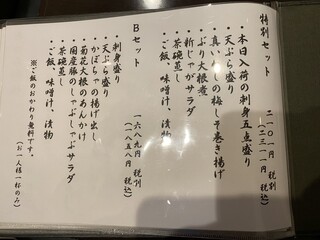 特別セット
二一〇一円 税別
(二三一一円 税込)
・本日入荷の刺身五点盛り
・天ぷら盛り
・真いわしの梅しそ巻き揚げ
・ぶり大根煮
・新じゃがサラダ
・茶碗蒸し
・ご飯、味噌汁、漬物
Bセット
一六八九円 税別
(一八五八円 税込)
・刺身盛り
・天ぷら盛り
・かぼちゃの揚げ出し
・菊花大根のあんかけ
・国産豚のしゃぶしゃぶサラダ
・茶碗蒸し
・ご飯、味噌汁、漬物
※ご飯のおかわり無料です。
(お一人様一杯のみ)